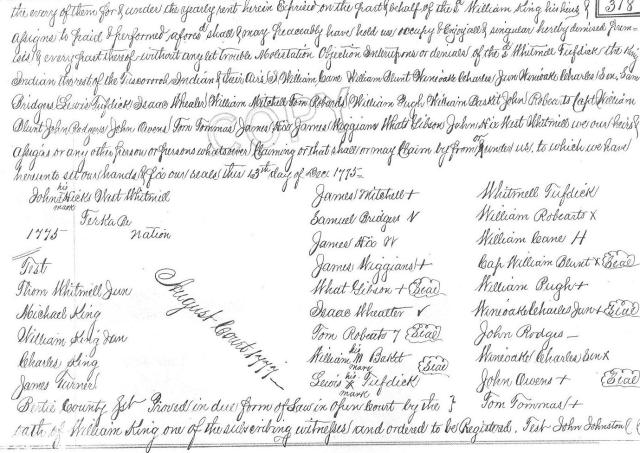 the every of them for & under the yearly rent herein Exprised on the part & behalf of the Sd William King his heirs &
318
assigns to paid & performed aforesd shall & may Peaceably have hold use occupy & Enjoy all & singular hereby demised Prem-
ises & every part thereof without any let trouble Molestation Objection Interuptions or denials of the Sd Whitmell Tufdick the
Indian the rest of the Tuscororal Indian & their William Cane William Blunt Wineoake Charles Jun Wineoake Charles Sen, Sam
Bridgers Lewis Tufdick Isaac Wheeler William Mitchell Tom Roberts William Pugh William Basket John Robearts Capt William
Blunt John Rodgers John Owens Tom Tommas James Hix James Wiggians What Gibson John Hix West Whitmell we our heirs &
assigns or any other person or persons whatsoever Claiming or that shall or may Claim by from under us, to which we have
hereunto set our hands & fix our seals this day of Dec. 1775
COPY
John his mark Hicks West Whitmill
Nation
1775
Test
Thom Whitmell Jun
Michael King
William King Jun
Charles King
James Turner
August Court 1777
James Mitchell +
Samuel Bridgers
James Hix
James Wiggians +
What Gibson + Seal
Isaac Wheeler
Tom Roberts Seal
William his mark Basket Seal
Lewis his mark Tufdick
Whitmell Tufdick
William Robearts x
William Cane H
Cap William Blunt x Seal
William Pugh +
Wineoak Charles Jun + Seal
John Rodgers
Wineoake Charles Sen x
John Owens + Seal
Tom Tommas +
Bertie County Proved in due form of Law in open Court by the }
oath of William King one of the subscribing witnesses and ordered to be Registered. Test John Johnston